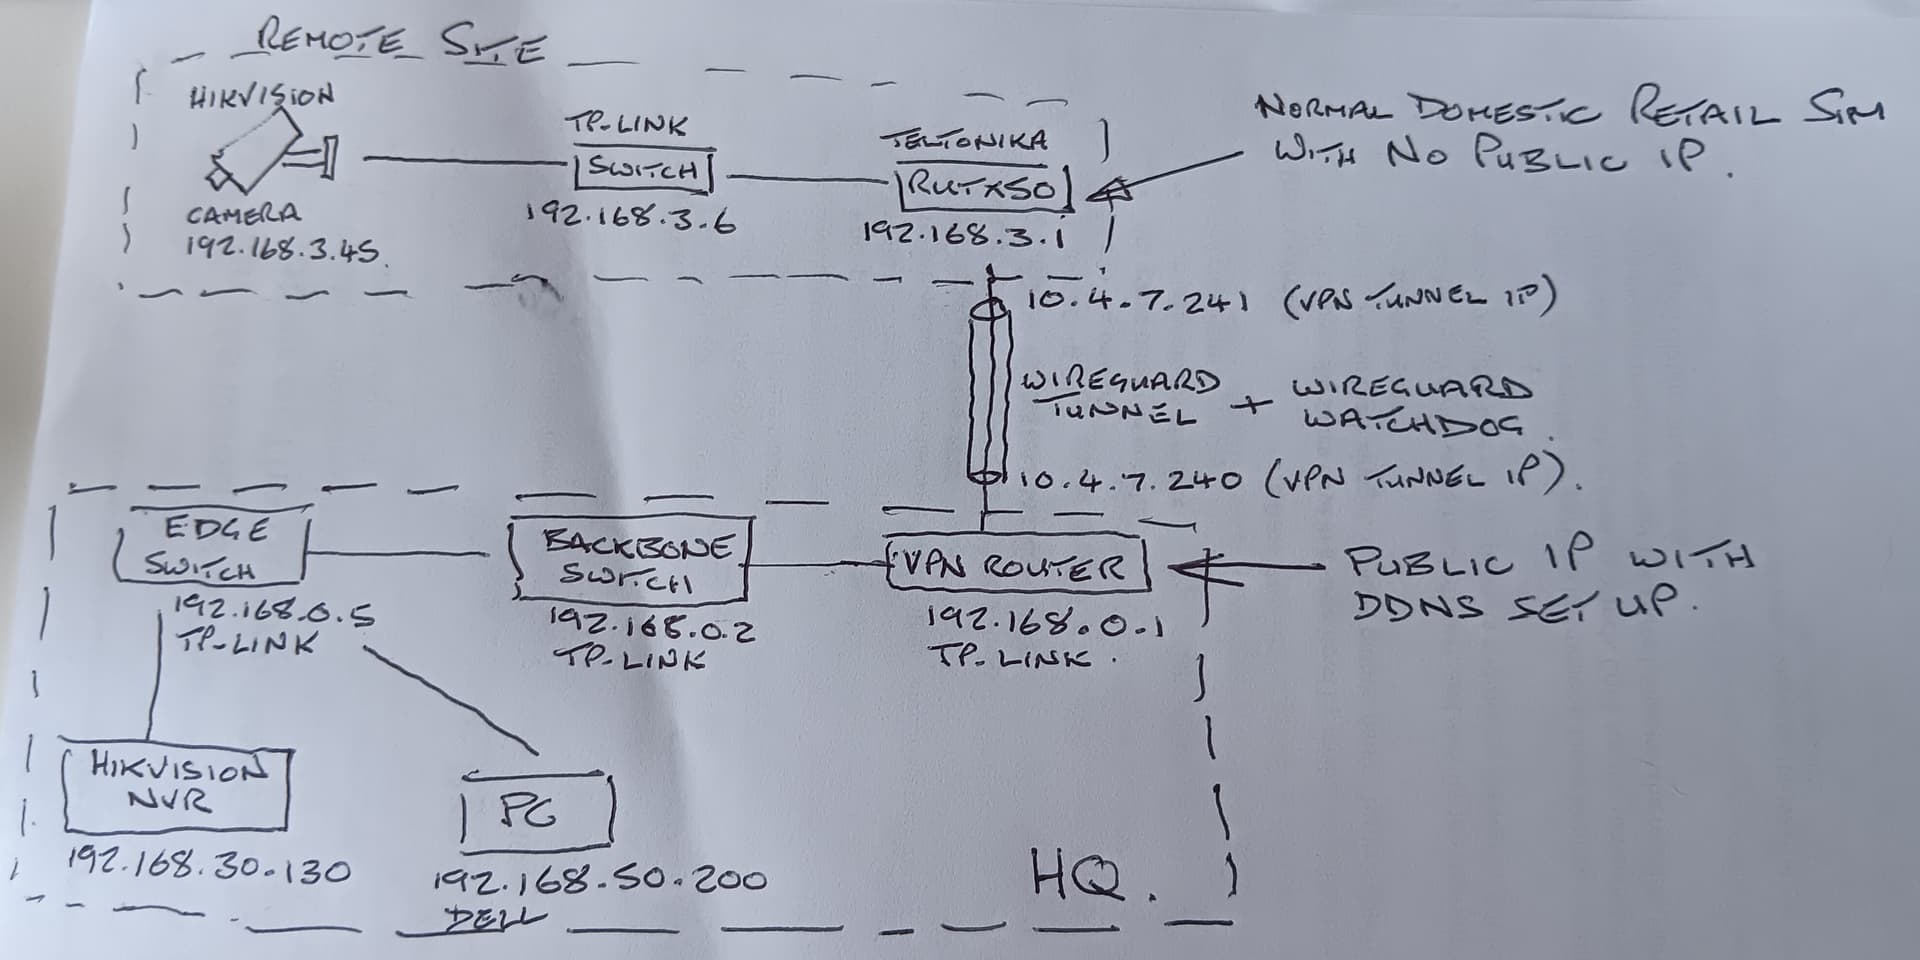 REMOTE SITE
HIKVISION
CAMERA
192.168.3.45.
TP-LINK
SWITCH
192.168.3.6
TELTONIKA
RUTX50
192.168.3.1
NORMAL DOMESTIC RETAIL SIM
WITH NO PUBLIC IP.
10.4.7.241 (VPN TUNNEL IP)
WIREGUARD
TUNNEL
+
WIREGUARD
WATCHDOG.
10.4.7.240 (VPN TUNNEL IP).
EDGE
SWITCH
192.168.0.5
TP-LINK
BACKBONE
SWITCH
192.168.0.2
TP-LINK
VPN ROUTER
192.168.0.1
TP-LINK.
PUBLIC IP WITH
DDNS SET UP.
HIKVISION
NVR
192.168.30.130
PC
192.168.50.200
DELL
HQ.